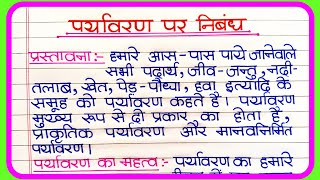 पर्यावरण पर निबंध
प्रस्तावना:- हमारे आस-पास पाये जानेवाले
सभी पदार्थ, जीव-जन्तु, नदी-
तलाब, खेत, पेड़-पौधा, हवा इत्यादि के
समूह को पर्यावरण कहते हैं। पर्यावरण
मुख्य रूप से दो प्रकार का होता है,
प्राकृतिक पर्यावरण और मानवनिर्मित
पर्यावरण।
पर्यावरण का महत्व:- पर्यावरण का हमारे